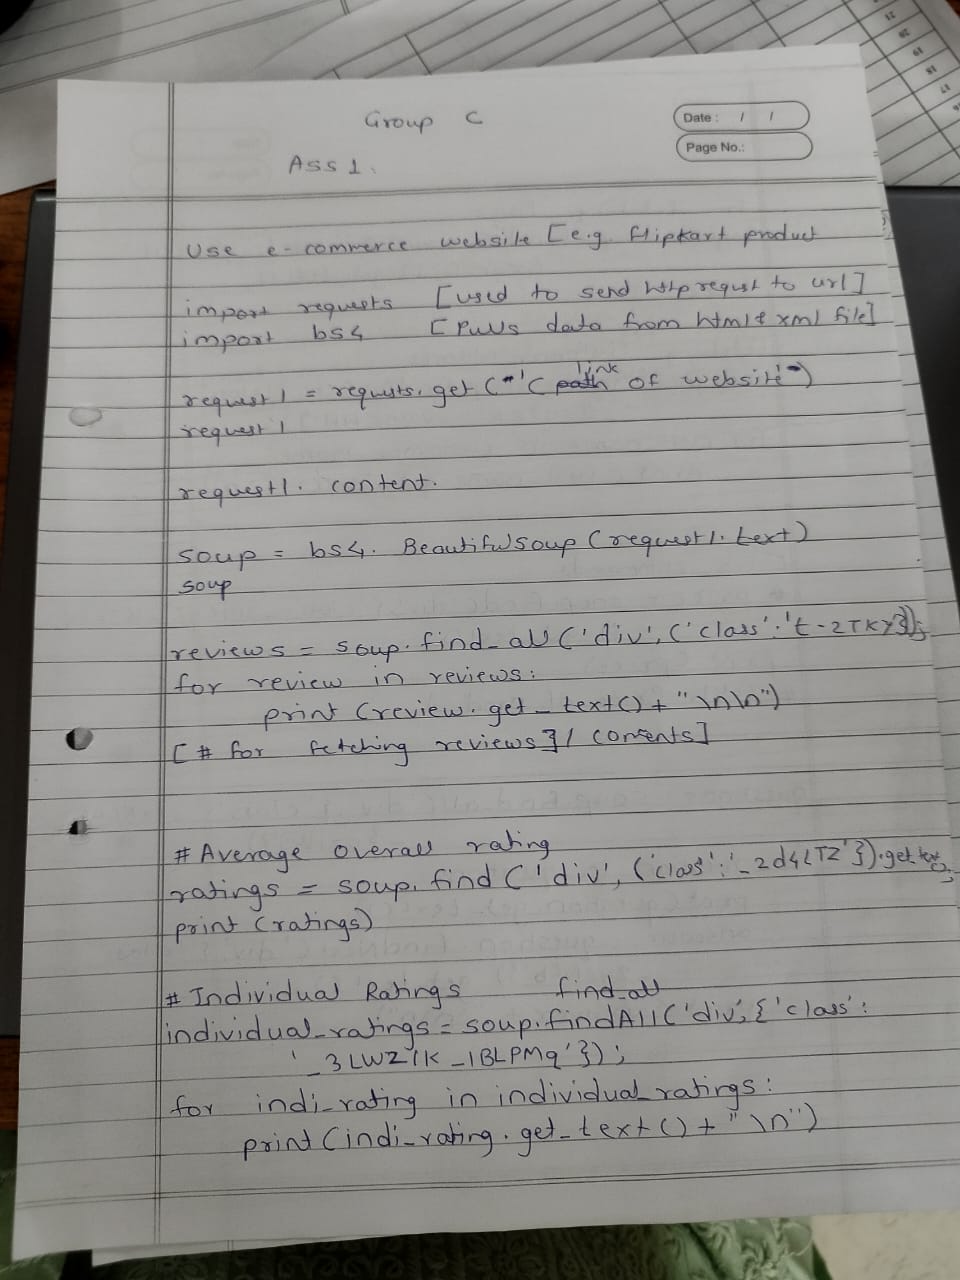 Group C
Date : / /
Page No.:
Ass 1.
Use e-commerce website [e.g. flipkart product
import requests [used to send http requst to url]
import bs4 [Pulls data from html & xml file]
link
request1 = requsts. get ("'( path of website")
request1
request1. content.
soup = bs4. Beautifulsoup (request1. text)
soup
reviews = soup. find_all ('div', ('class':'t-2TKY3});
for review in reviews:
print (review. get_text() + "\n\n")
[# for fetching reviews]/ coments]
# Average overall rating
ratings = soup. find ('div', ('class':'_2d4LTZ'}).get_text();
print (ratings)
# Individual Ratings find_all
individual_ratings = soup.findAll('div', {'class':
'_3LWZlK _1BLPMq'});
for indi_rating in individual_ratings:
print (indi_rating. get_text() + "\n")
21
20
19
18
17